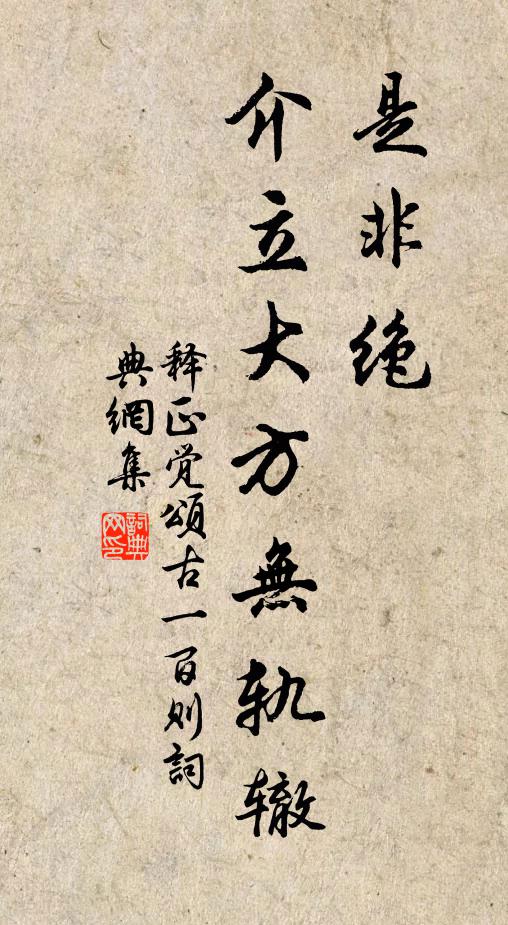 是非绝
介立大方無軌辙
释正觉頌古一百则詞
典網集
詞典網印